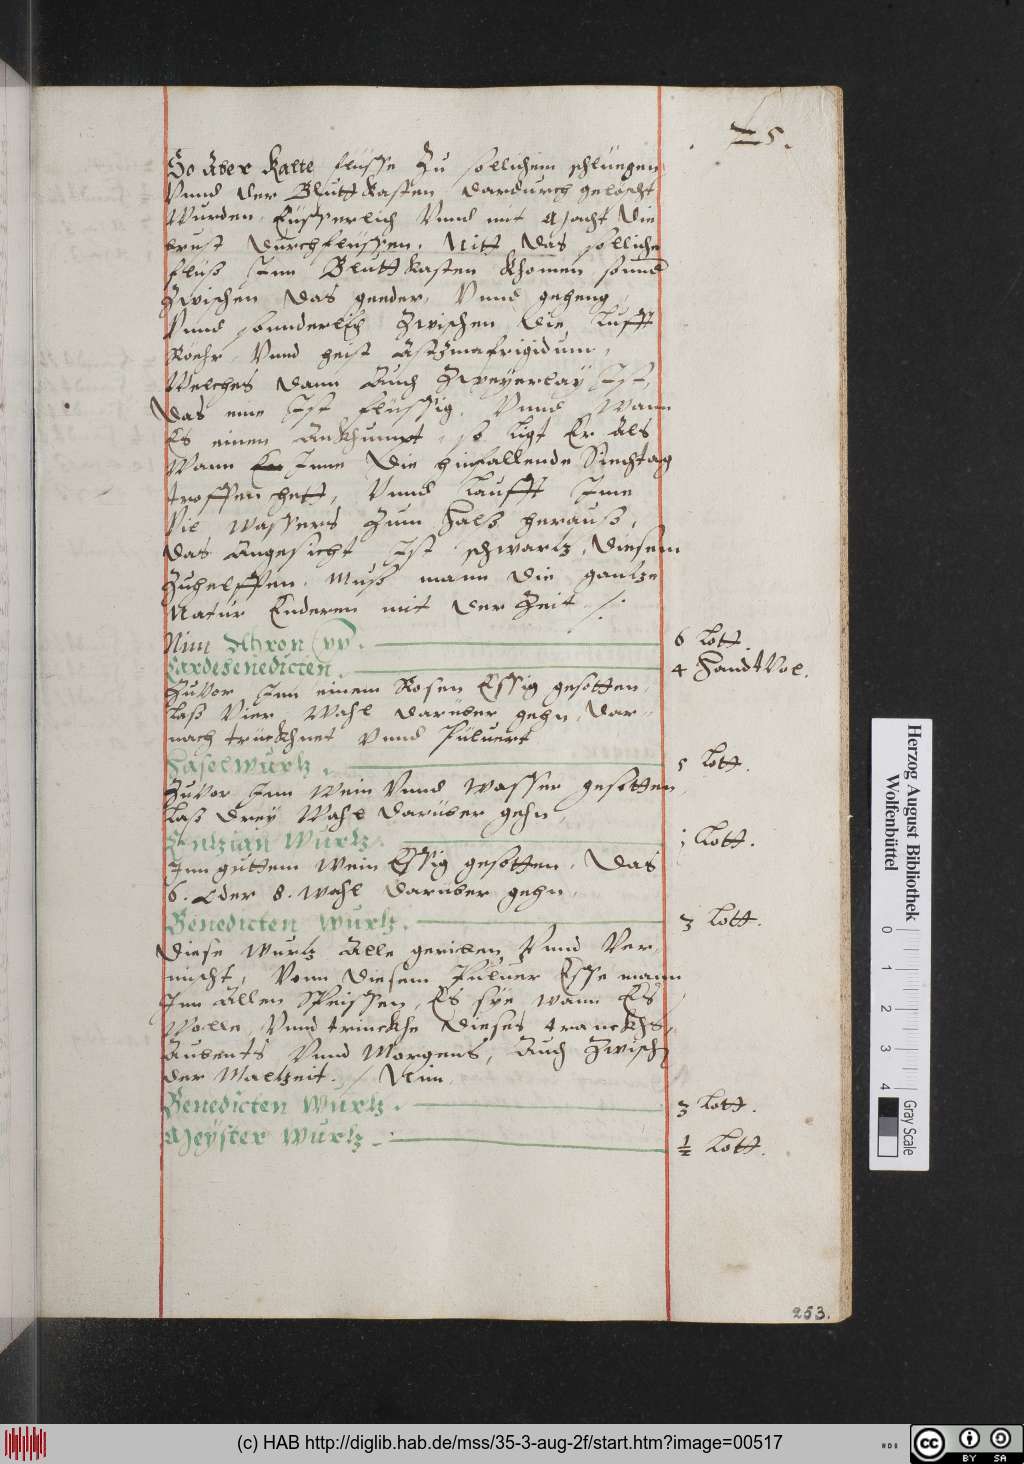 5.
So Aber Kalte flüsse Zu sollichem schlüegen
Vnnd der Bluttkasten dardurch geloscht
Wurden Eüsserlich Vnnd mit Macht Die
brust Durchflüssen. Nitt Das solliche
fluß Inn Bluttkasten Khomen sonnd
Zwischen Das geeder, Vnnd geheng,
Vnnd sonnderlich Zwischen Die Lufft
Röehr, Vnnd heist Astzmafrigidum,
Welches dann Auch Zweyerlay Ist,
Das eine Ist flüssig, Vnnd Wann
Es einen Ankhumpt, so ligt Er Als
Wann Inne Die hinfallende Siechtag
troffen hett, Vnnd Laufft Ime
Vil Wassers Zum Halß herauß,
Das Angesicht Ist schwartz, Diesem
Zuhelffen. Muß mann Die gantze
Natur Enderen mit Der Zeit ./.
Nim Ahron 6 Lott.
Cardebenedicten. 4 Handt Vol.
Zuvor Inn einem Rosen Essig gesotten.
Laß Vier Wahl darüber gehn, Dar-
nach trückhnet Vnnd Püluert
Haselwurtz. 5 Lott.
Zuvor Inn Wein Vnnd Wasser gesotten,
Laß Drey Wahl Darüber gehn,
Entzian Wurtz. j Lott.
Inn guttem Wein Essig gesotten. Das
6. Oder 8. Wahl Darüber gehn,
Benedicten Wurtz. 3 Lott.
Diese Wurtz Alle geriben Vnnd Ver-
mischt, Vonn Diesem Püluer Esse mann
Inn Allen Speissen, Es sye Wann Es
Wolle, Vnnd trinckhe Dieses tranckhs,
Aubents Vnnd Morgens, Auch Zwisch
Der Maltzeit. / Nim
Benedicten Wurtz. 3 Lott.
Meyster Wurtz. ½ Lott.
253.
Herzog August Bibliothek
Wolfenbüttel
0 1 2 3 4
Gray Scale
(c) HAB http://diglib.hab.de/mss/35-3-aug-2f/start.htm?image=00517
cc BY SA